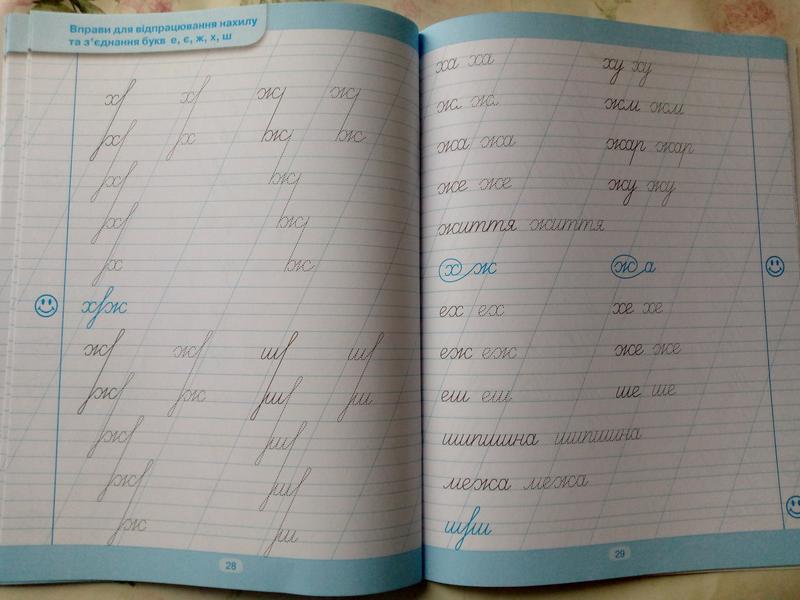 Вправи для відпрацювання нахилу
та з'єднання букв е, є, ж, х, ш
х х ж ж
х х ж ж
х ж
х ж
х ж
хж
ж ж ш ш
ж ж ш ш
ж ш
ж ш
ж ш
28
ха ха ху ху
ж ж жм жм
жа жа жар жар
же же жу жу
життя життя
х ж ж а
ех ех хе хе
еж еж же же
еш еш ше ше
шипшина шипшина
межа межа
шш
29